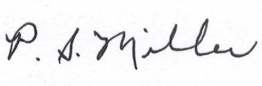 P. S. Miller